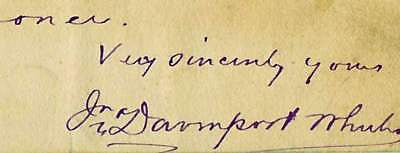 oner.
Very sincerely yours
Jno Davenport